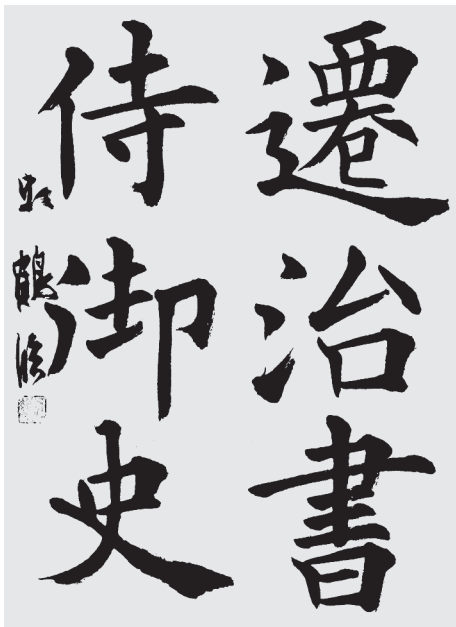 遷治書
侍御史
鶴臨